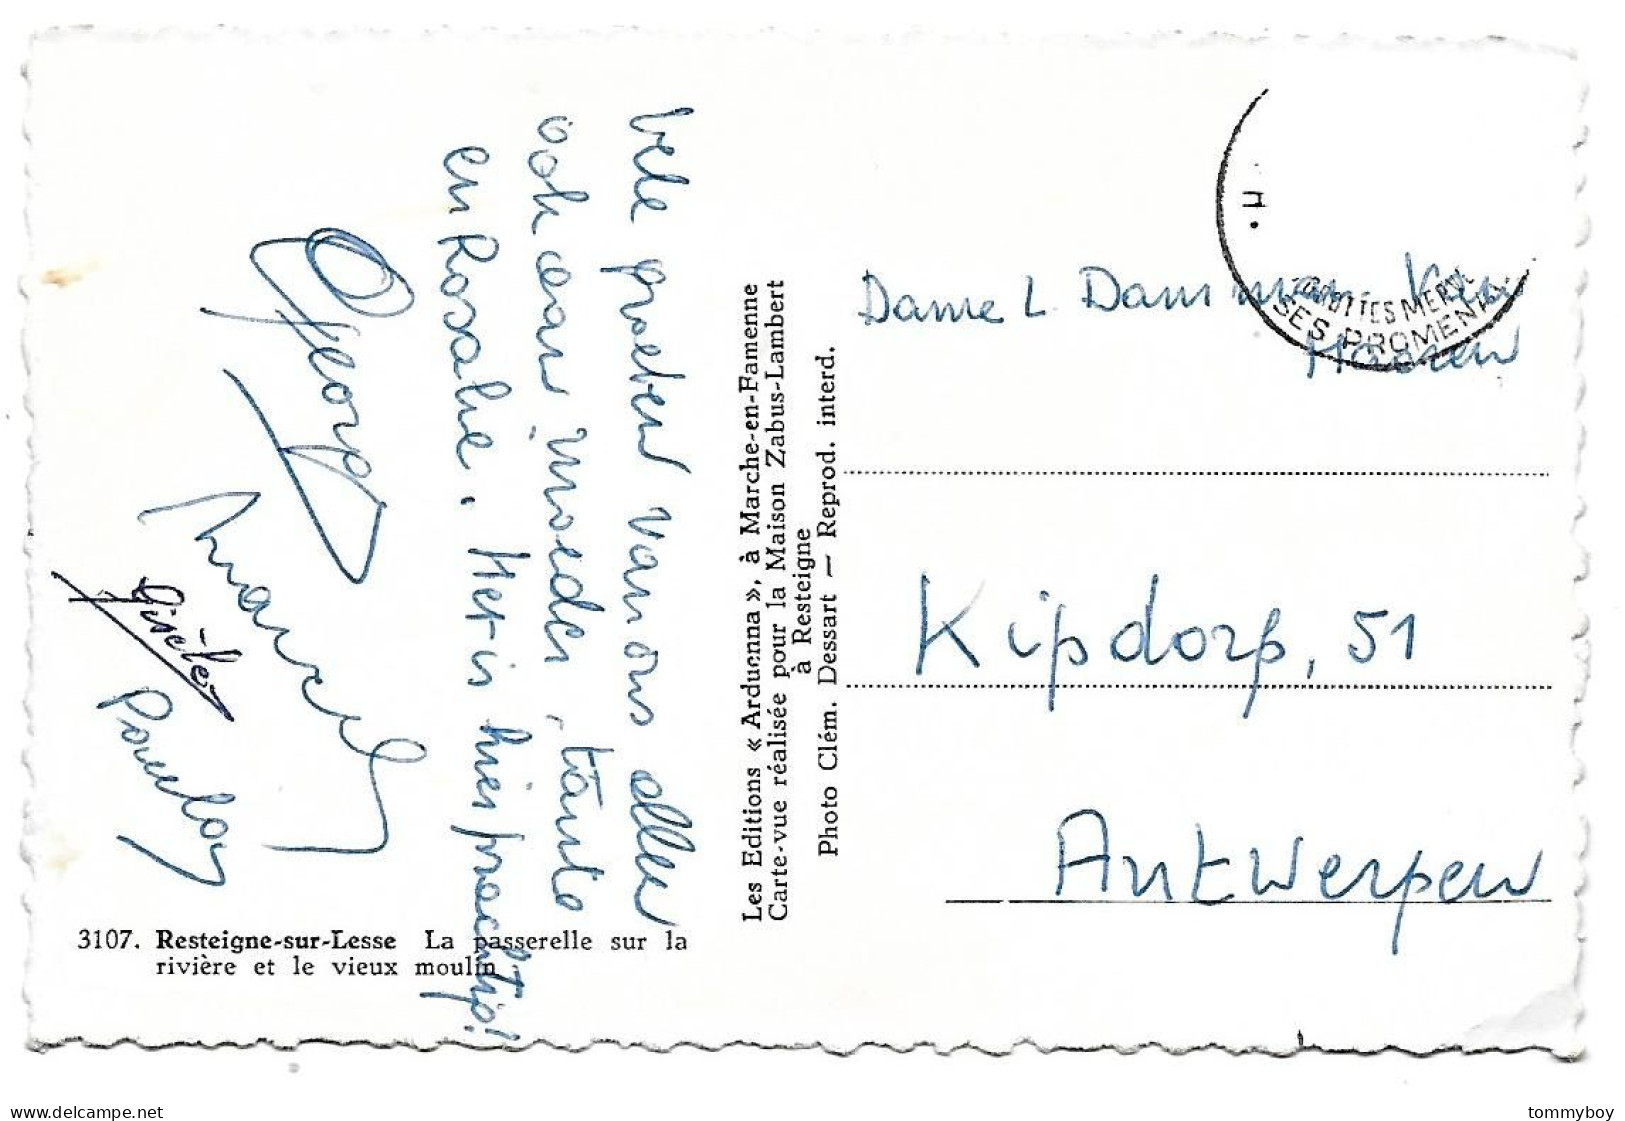 Vele groeten van ons allen
ook aan moeder, tante
en Rosalie. Het is hier prachtig!
George
Marcel
Gisèle
Paula
3107. Resteigne-sur-Lesse La passerelle sur la
rivière et le vieux moulin
Les Editions « Arduenna », à Marche-en-Famenne
Carte-vue réalisée pour la Maison Zabus-Lambert
à Resteigne
Photo Clém. Dessart — Reprod. interd.
H.
GROTTES MERV
SES PROMENA
Dame L Damman Van
Hooren
Kipdorp, 51
Antwerpen
delcampe.net
tommyboy